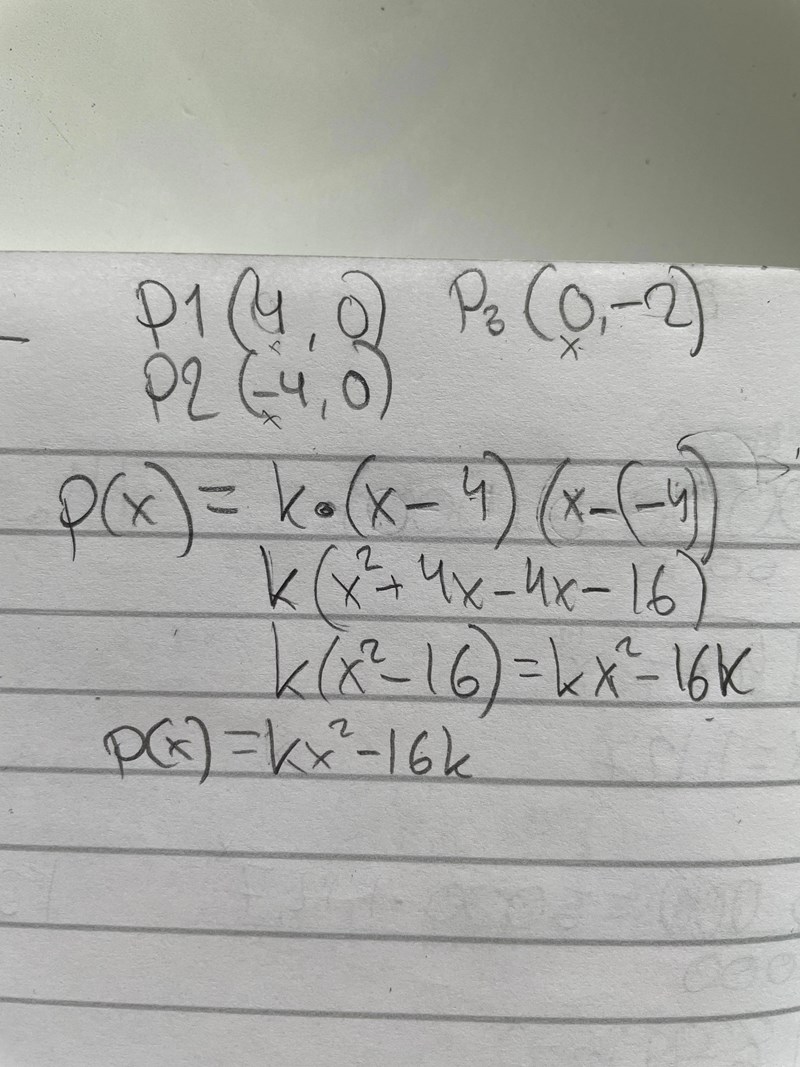 P1 (4, 0) P3 (0, -2)
x x
P2 (-4, 0)
x
p(x) = k•(x-4) (x-(-4))
k(x²+4x-4x-16)
k(x²-16) = kx²-16k
p(x) = kx²-16k